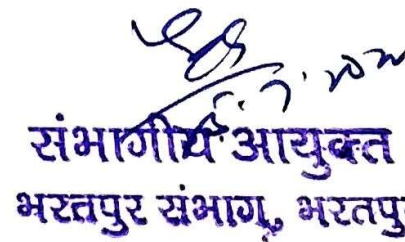 संभागीय आयुक्त
भरतपुर संभाग, भरतपु